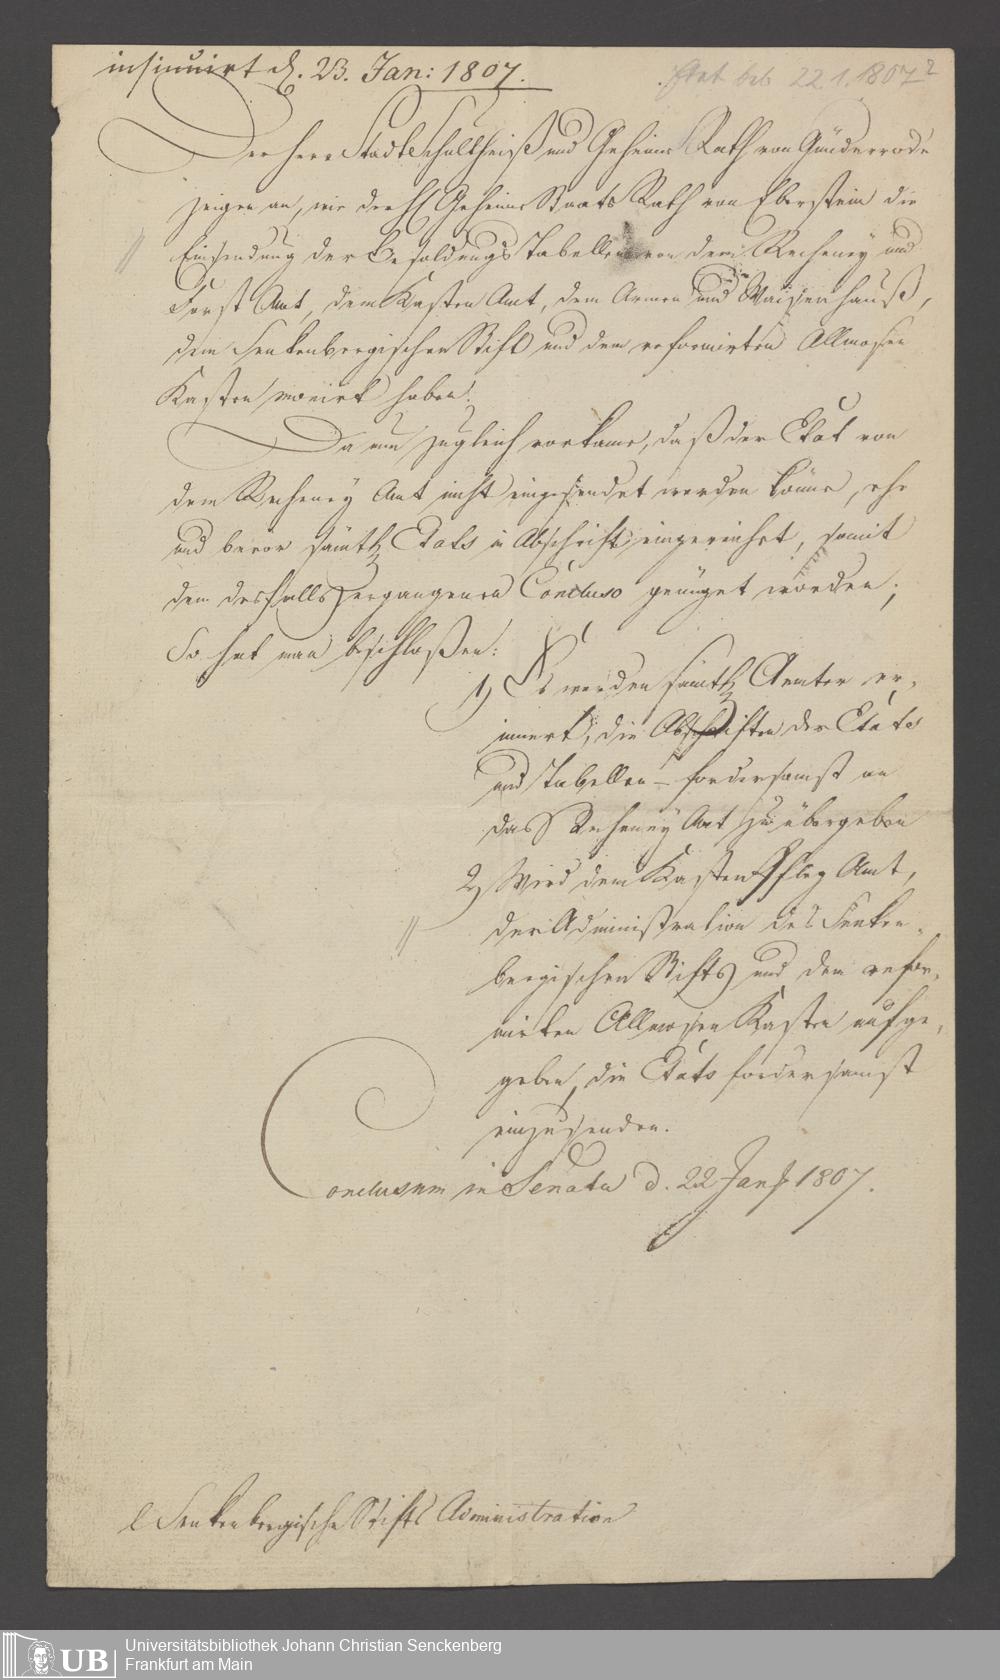 insinuirt d. 23. Jan: 1807.
22.1.1807
Der Herr Stadtschultheiß und Geheime Rath von Günderrode
zeigen an, wie der H Geheime Staats Rath von Eberstein die
Einsendung der Besoldungs Tabellen von dem Recheney und
Forst Amt, dem Kasten Amt, dem Armen und Waisenhauß,
dem Senkenbergischen Stift und dem reformirten Allmosen
Kasten monirt haben.
Da nun zugleich vorkame, daß der Etat von
dem Recheney Amt nicht eingesendet werden könne, ehe
und bevor sämtl. Etats in Abschrift eingereicht, somit
dem desfalls ergangenen Concluso genüget worden;
So hat man beschloßen:
1) Es werden sämtl. Aemter er-
innert, die Abschriften der Etats
und Tabellen – fordersamst an
das Recheney Amt zu übergeben
2) Wird dem Kasten Pfleg Amt,
der Administration des Senken-
bergischen Stifts und dem refor-
mirten Allmosen Kasten aufge-
geben, die Etats fordersamst
einzusenden.
Conclusum in Senatu d. 22 Jan 1807.
Senkenbergische Stifts Administration
UB Universitätsbibliothek Johann Christian Senckenberg
Frankfurt am Main